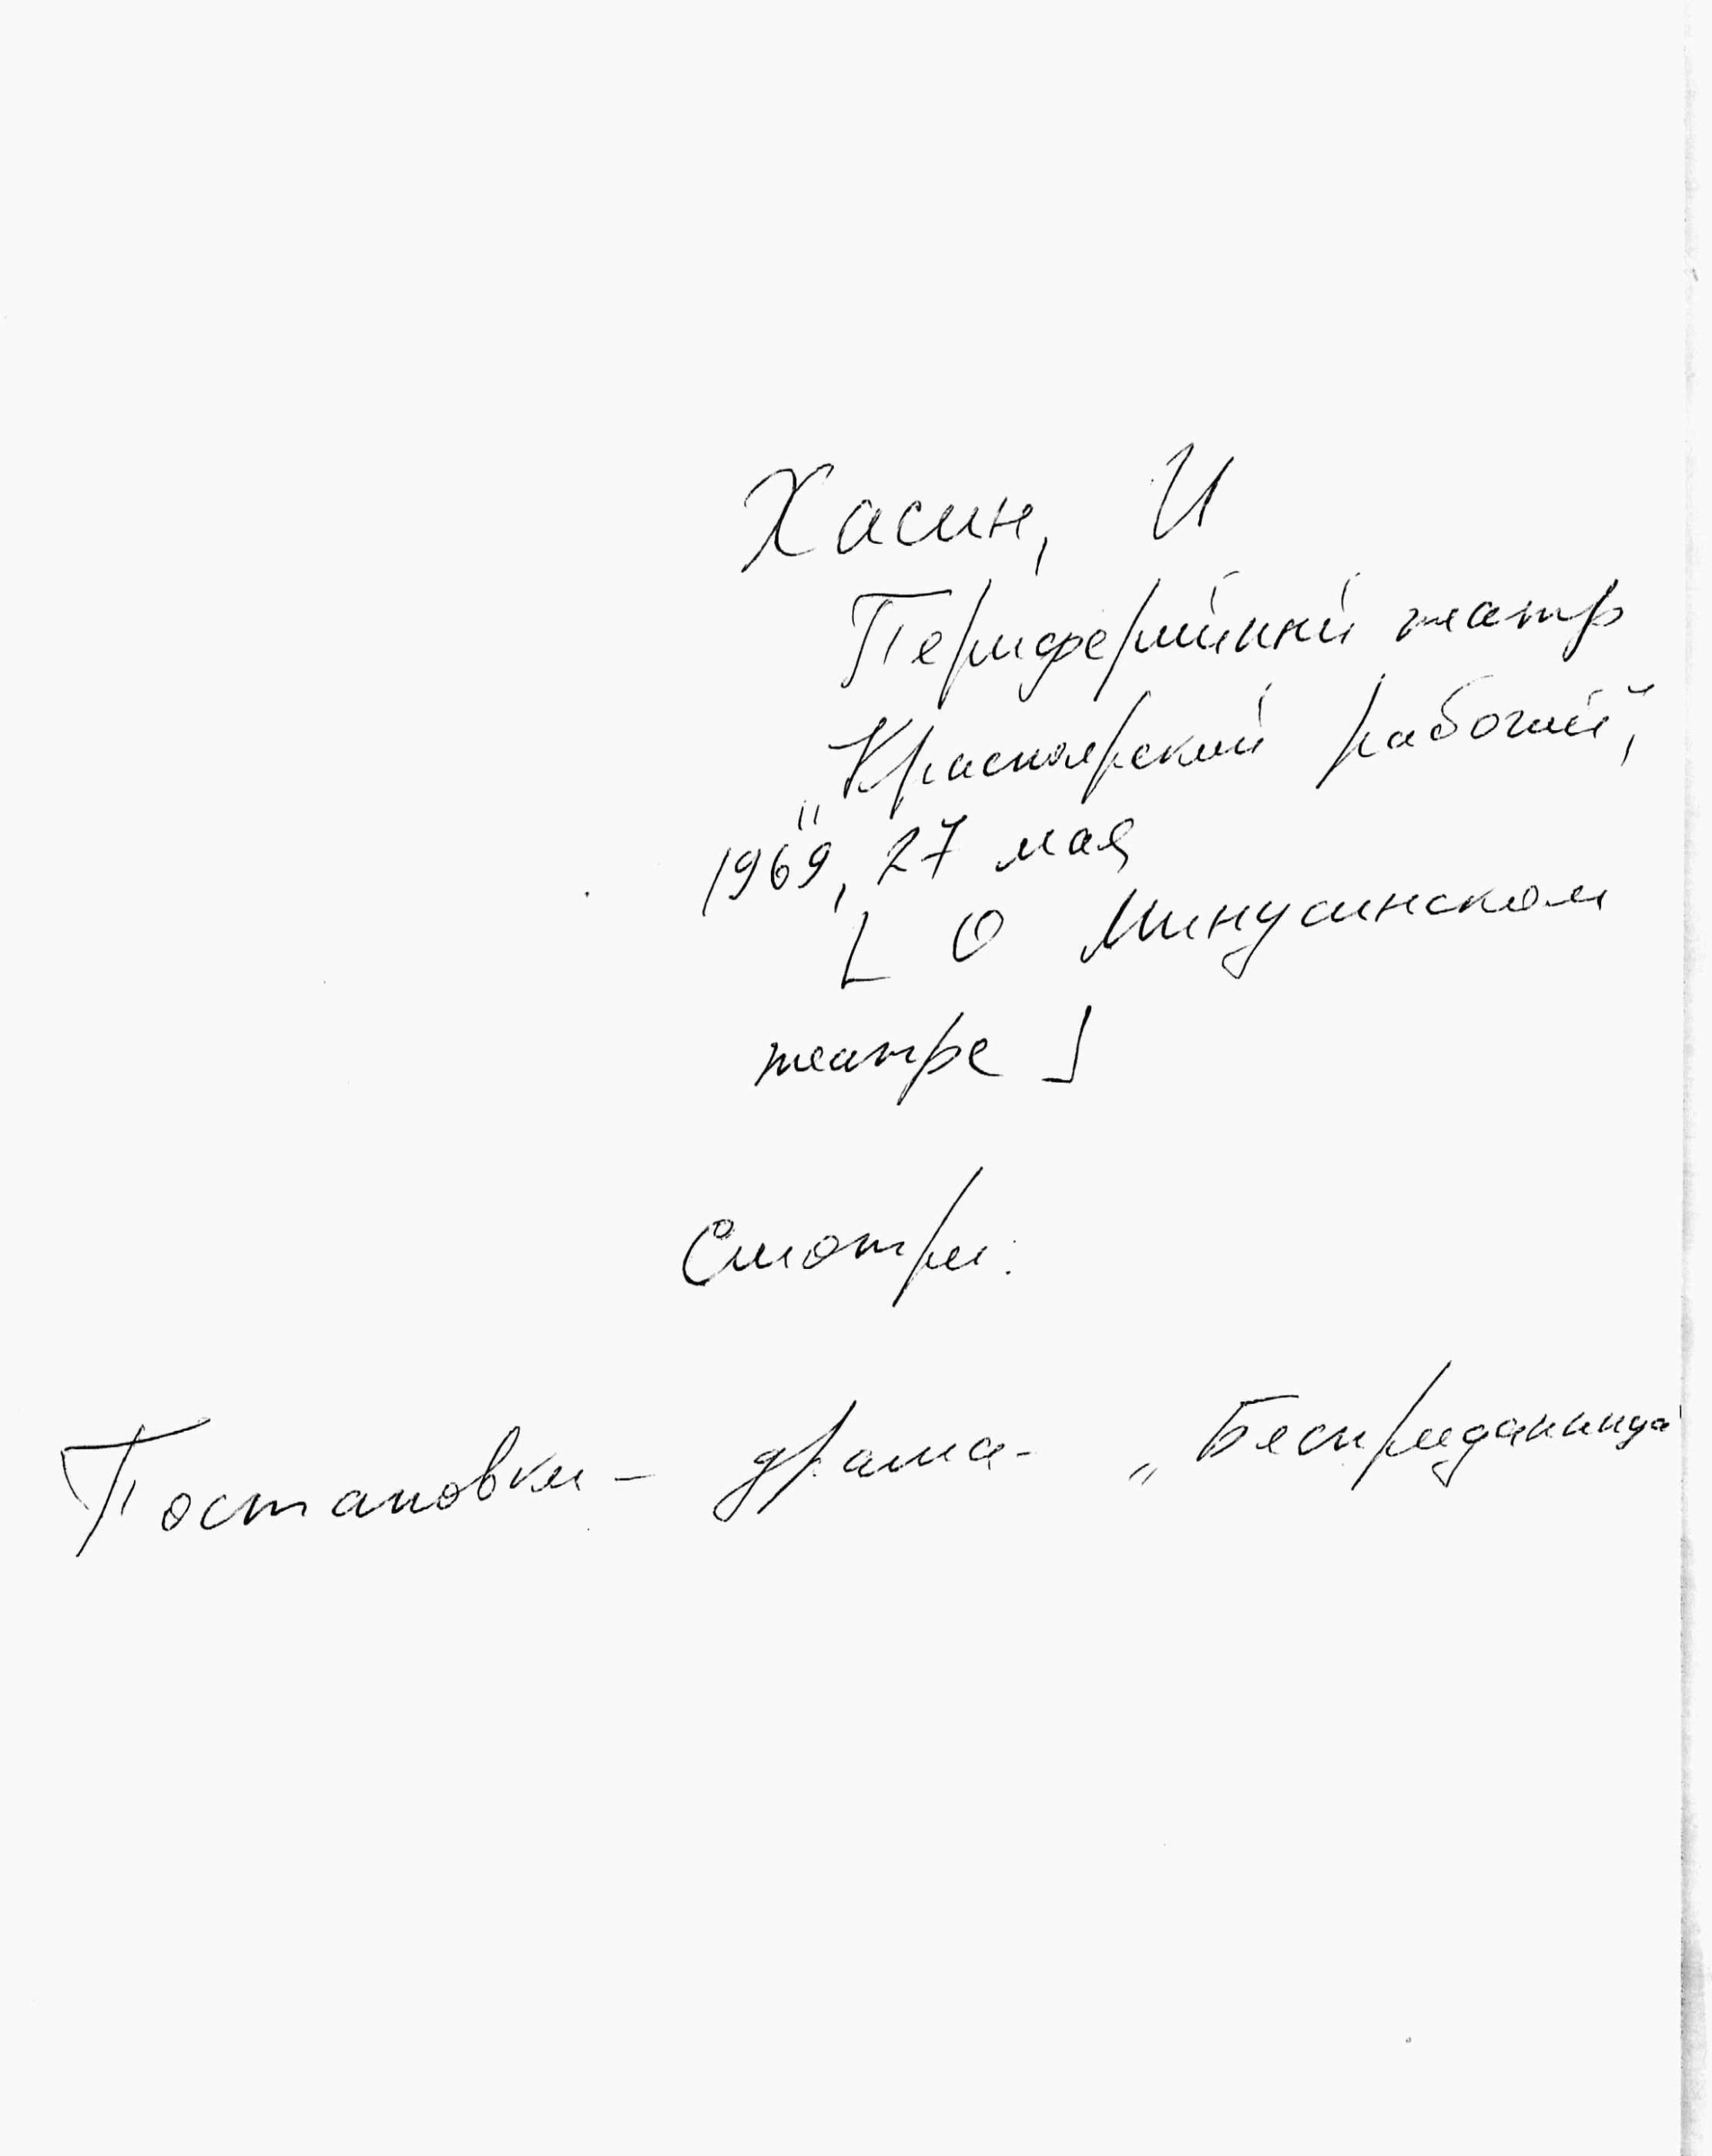 Хасин, И
Периферийный театр
„Красноярский рабочий",
1969, 27 мая
[ О Минусинском
театре ]
Смотри:
Постановки – драма – „Бесприданница"